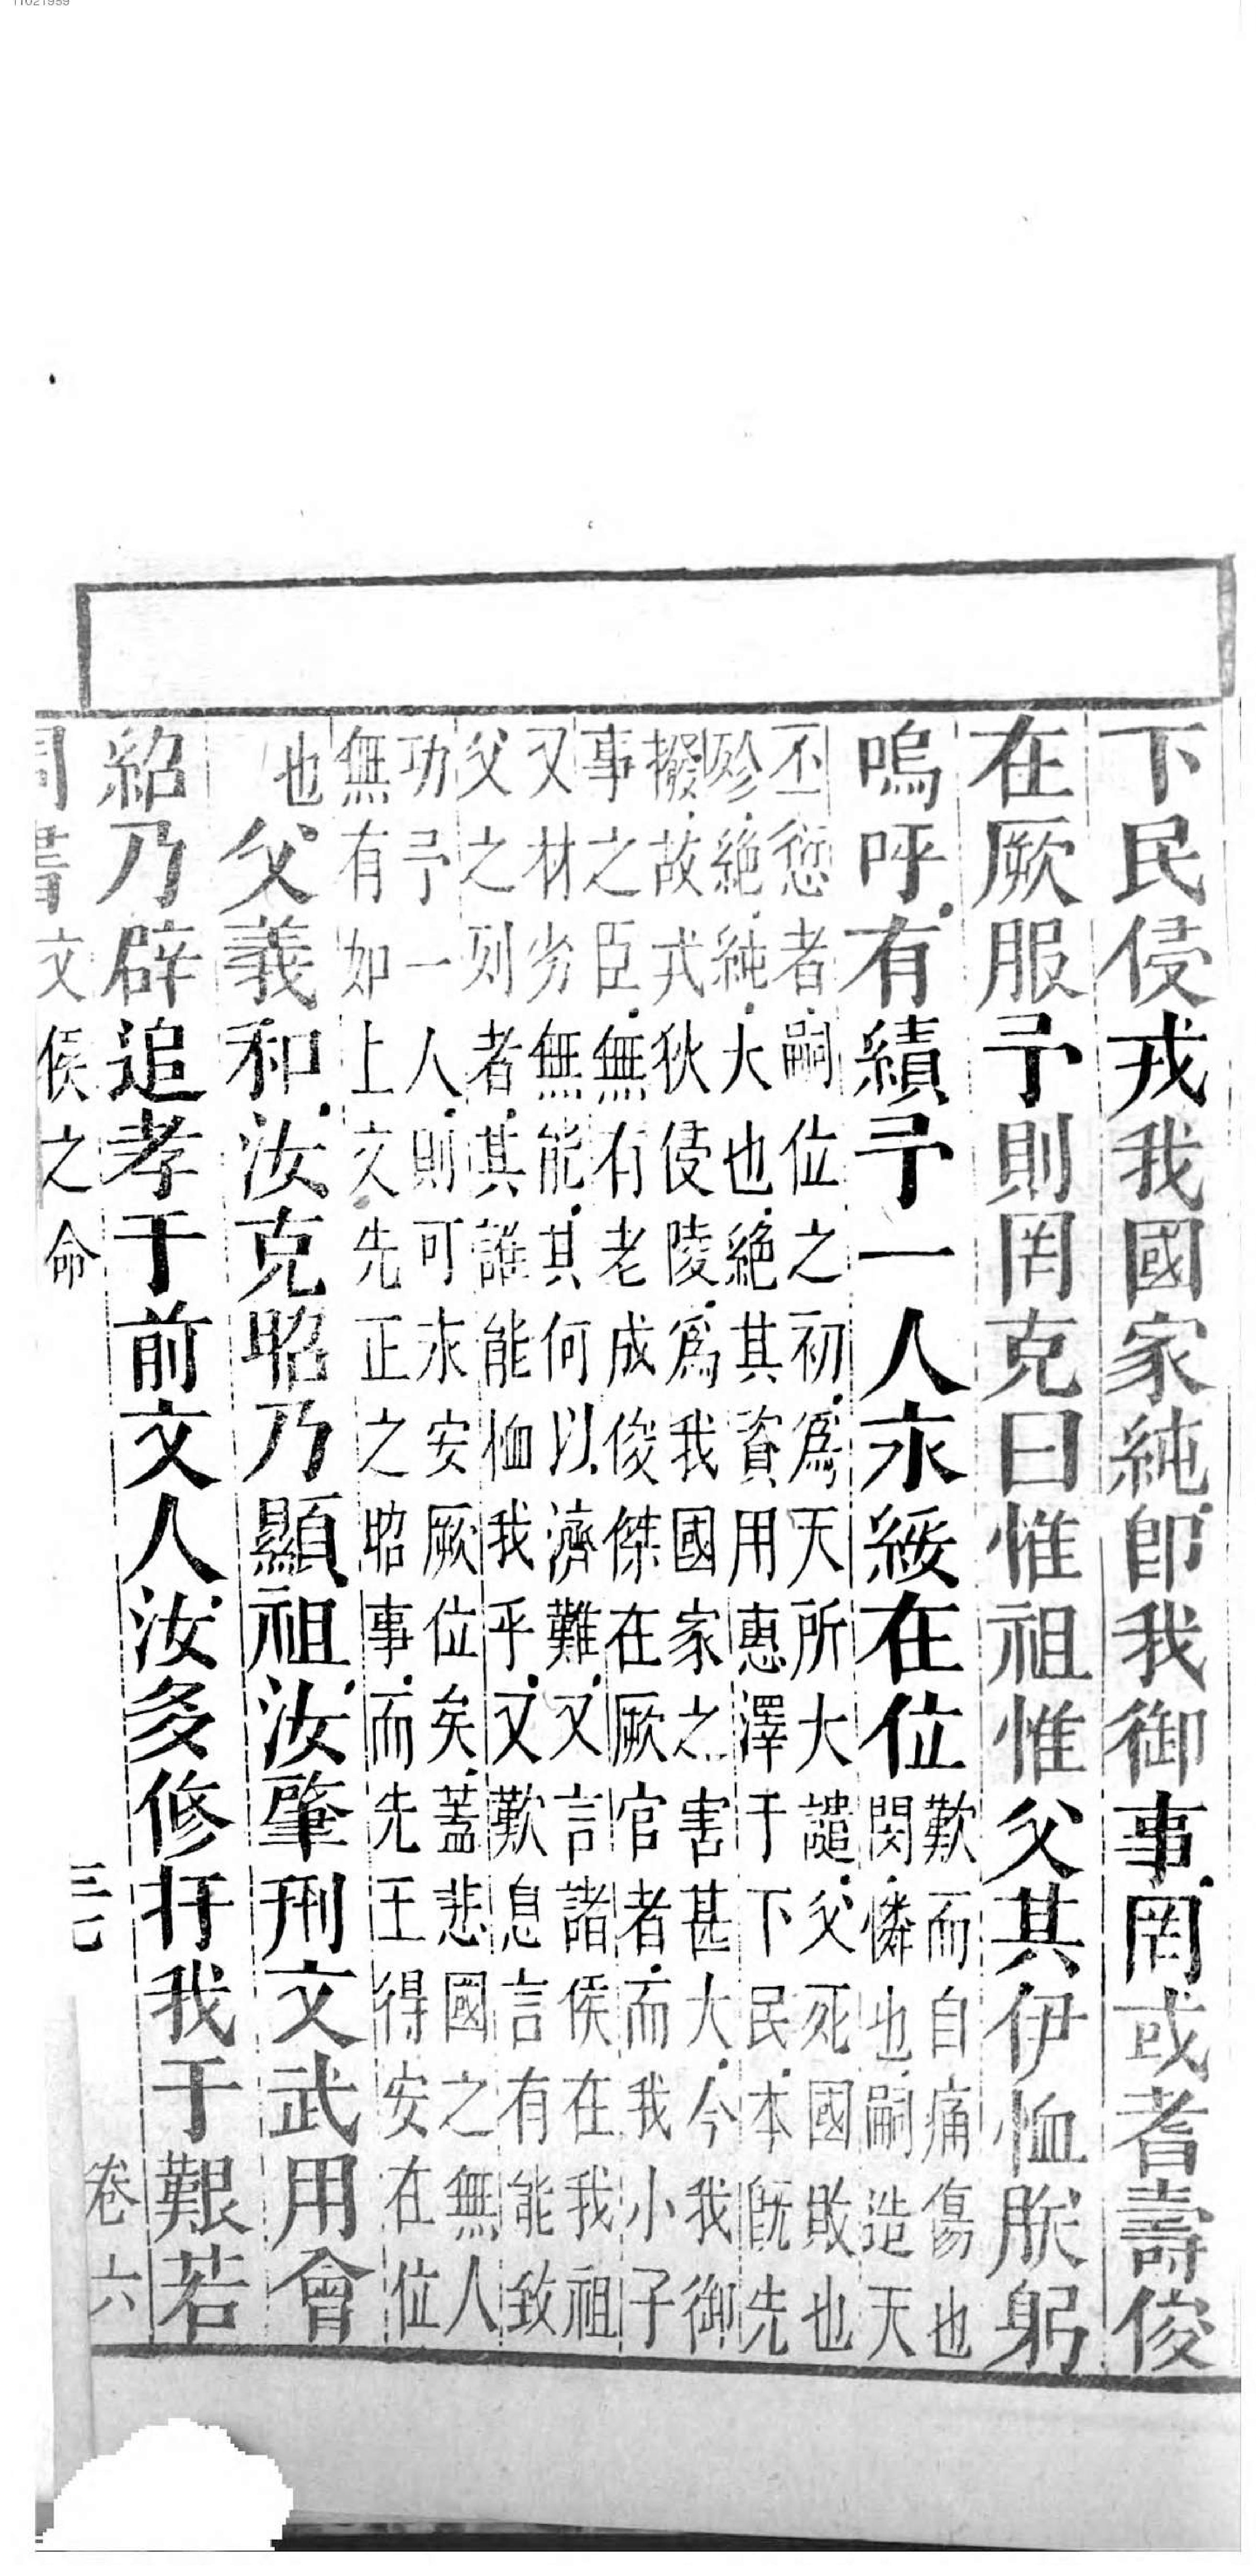 下民侵戎我國家純即我御事罔或耆壽俊
在厥服予則罔克曰惟祖惟父其伊恤朕躬
嗚呼有績予一人永綏在位
歎而自痛傷也
閔憐也嗣造天
丕愆者嗣位之初爲天所大譴父死國敗也
殄絶純大也絶其資用惠澤于下民本既先
撥故戎狄侵陵爲我國家之害甚大今我御
事之臣無有老成俊傑在厥官者而我小子
又材劣無能其何以濟難又言諸侯在我祖
父之列者其誰能恤我乎又歎息言有能致
功予一人則可永安厥位矣蓋悲國之無人
無有如上文先正之昭事而先王得安在位
也
父義和汝克昭乃顯祖汝肇刑文武用會
紹乃辟追孝于前文人汝多修扞我于艱若
周書文侯之命 三七 卷六